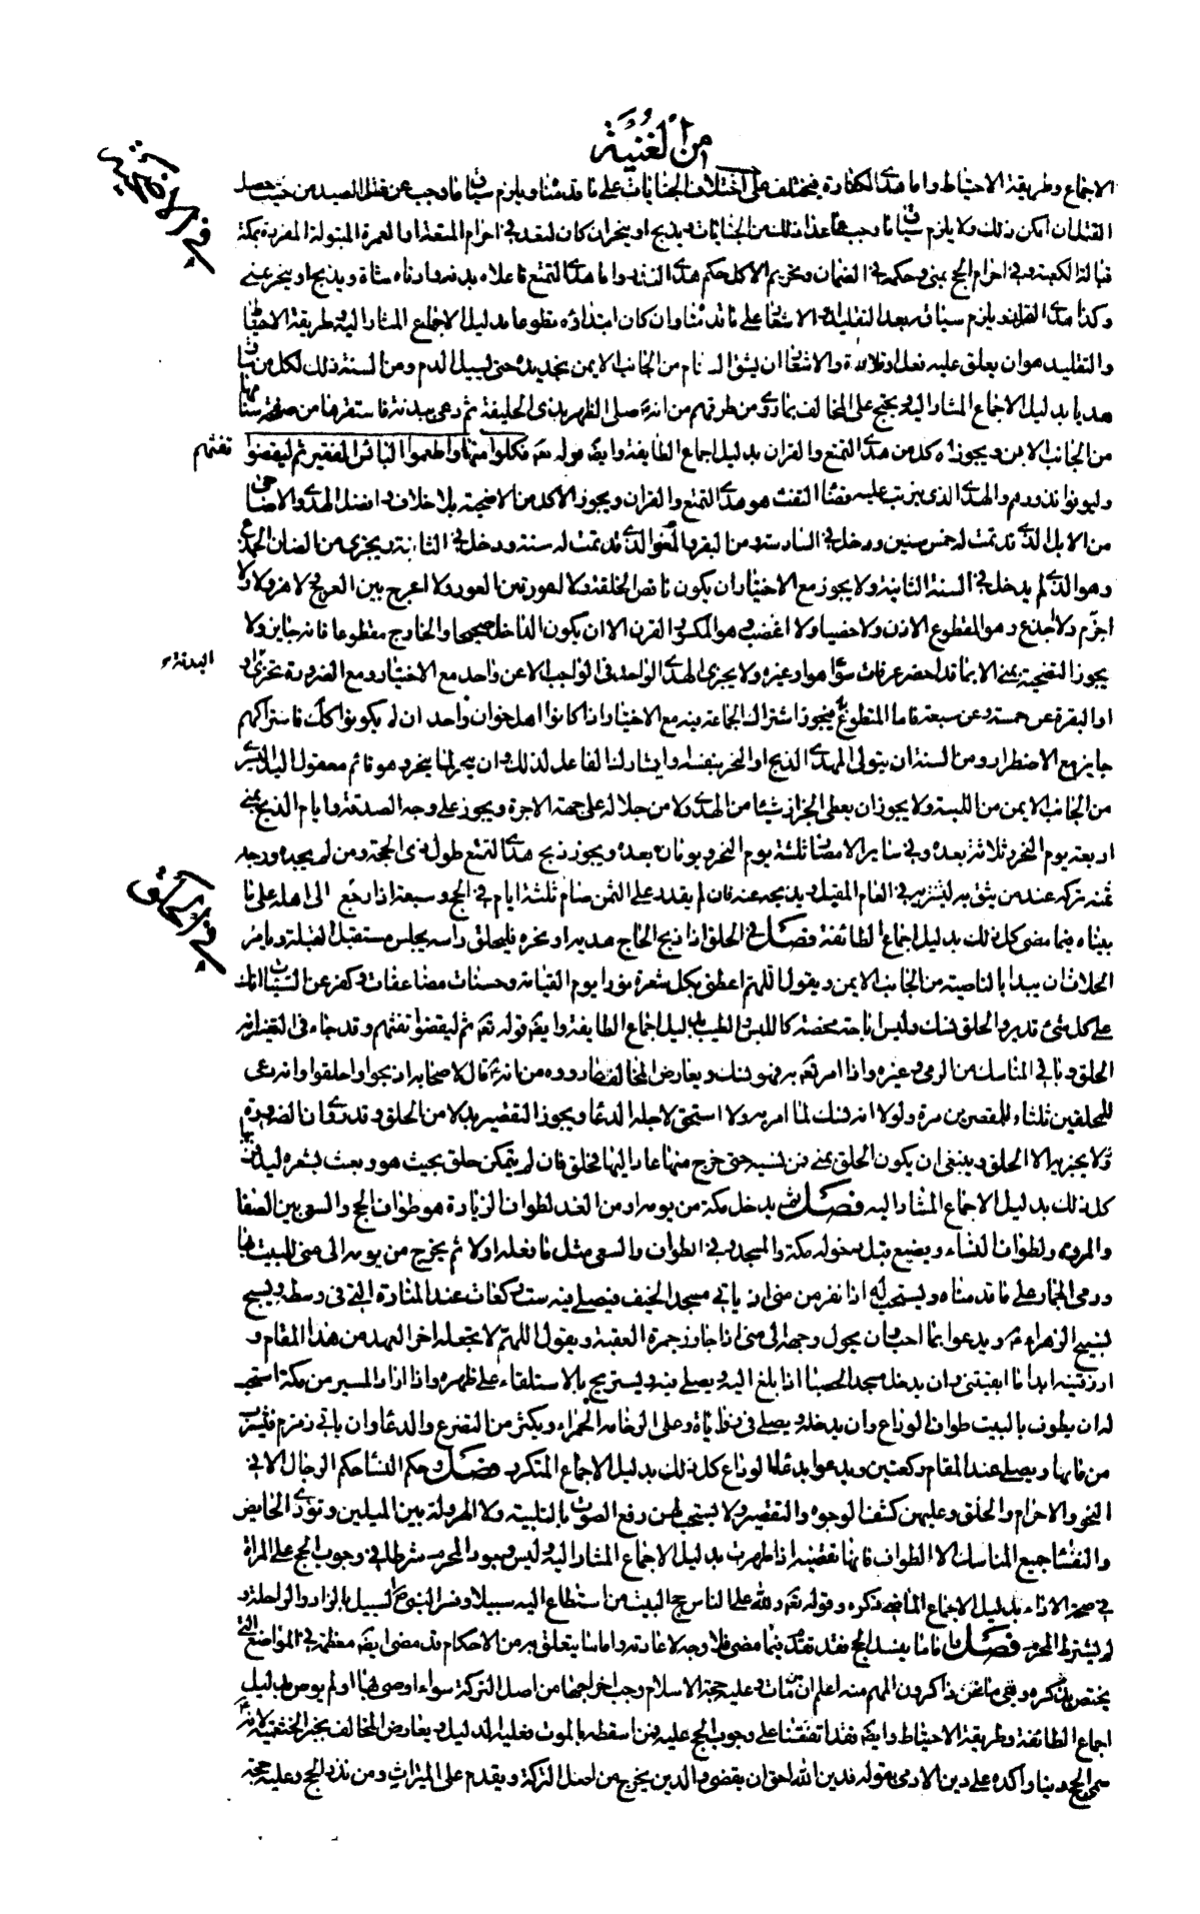 من الغنية
في الاضحية
الاجماع وطريقة الاحتياط واما هدى الكفارة فيختلف على اختلاف الجنايات على ما قدمناه ويلزم سياق ما وجب عن قتل الصيد من حيث حصل
القتل ان امكن ذلك ولا يلزم سياق ما وجب عما عدا ذلك من الجنايات ويذبح او ينحر ان كان لمتعد في احرام المتعة او العمرة المبتولة المفردة بمكة
قبالة الكعبة وفي احرام الحج بمنى وحكمه في الضمان وتحريم الاكل حكم هدى النذر واما هدى التمتع فاعلاه بدنة وادناه شاة ويذبح او ينحر بمنى
وكذا هدى القران ويلزم سياقه بعد التقليد او الاشعار على ما قدمناه وان كان ابتداؤه تطوعا بدليل الاجماع المشار اليه وطريقة الاحتياط
والتقليد هو ان يعلق عليه نعل او مزادة والاشعار ان يشق السنام من الجانب الايمن بحديدة حتى يسيل الدم ومن السنة ذلك لكل من ساق
هديا بدليل الاجماع المشار اليه ويحتج على المخالف بما روى من طرقهم من انه ع صلى الظهر بذى الحليفة ثم دعى ببدنة فاشعرها من صفحة سنامها
من الجانب الايمن ويجوز ان ياكل من هدى التمتع والقران بدليل اجماع الطائفة وايضا قوله تعالى فكلوا منها واطعموا البائس الفقير ثم ليقضوا تفثهم
وليوفوا نذورهم والهدى الذى يترتب عليه قضاء التفث هو هدى التمتع والقران ويجوز الاكل من الاضحية بلا خلاف وافضل الهدى والاضاحى
من الابل الذى قد تمت له خمس سنين ودخل في السادسة ومن البقر والمعز الذى قد تمت له سنة ودخل في الثانية ويجزى من الضان الجذع
وهو الذى لم يدخل في السنة الثانية ولا يجوز مع الاختيار ان يكون ناقص الخلقة ولا اعور بين العور ولا اعرج بين العرج ولا مهزولا ولا
اخرم ولا اجدع وهو المقطوع الاذن ولا خصيا ولا اعضب وهو المكسور القرن الا ان يكون الداخل صحيحا والخارج مقطوعا فانه جايز ولا
يجوز التضحية بمنى الا بما قد احضر عرفات سواء هو او غيره ولا يجزى الهدى الواحد في الواجب الا عن واحد مع الاختيار ومع الضرورة تجزى البدنة
او البقرة عن خمسة وعن سبعة فاما المتطوع به فيجوز اشتراك الجماعة فيه مع الاختيار اذا كانوا اهل خوان واحد ان لم يكونوا كذلك فاشتراكهم
جايز مع الاضطرار ومن السنة ان يتولى المهدى الذبح او النحر بنفسه او يشارك الفاعل لذلك وان ينحر ما ينحر وهو قائم معقول اليد اليسرى
من الجانب الايمن من اللبة ولا يجوز ان يعطى الجزار شيئا من الهدى ولا من جلاله على جهة الاجرة ويجوز على وجه الصدقة وايام الذبح بمنى
اربعة يوم النحر وثلاثة بعده وفي سائر الامصار ثلثة يوم النحر ويومان بعده ويجوز ذبح هدى التمتع طول ذى الحجة ومن لم يجده ووجد
ثمنه تركه عند من يثق به ليشتريه في العام المقبل ويذبحه عنه فان لم يقدر على الثمن صام ثلثة ايام في الحج وسبعة اذا رجع الى اهله على ما
في الحلق
بيناه فيما مضى كل ذلك بدليل اجماع الطائفة فصل في الحلق اذا ذبح الحاج هديه او نحره فليحلق راسه يجلس مستقبل القبلة ويامر
الحلاق ان يبدا بالناصية من الجانب الايمن ويقول اللهم اعطنى بكل شعرة نورا يوم القيامة وحسنات مضاعفات وكفر عنى السيئات انك
على كل شئ قدير والحلق نسك وليس اباحة محضة كاللبس والطيب بدليل اجماع الطايفة وايضا قوله تعالى ثم ليقضوا تفثهم وقد جاء في التفسير انه
الحلق وباقي المناسك من الرمى وغيره واذا امر تعالى به فهو نسك ويعارض المخالف بما رووه من انه ع قال لاصحابه اذبحوا واحلقوا وانه دعى
للمحلقين ثلثا وللمقصرين مرة ولولا انه نسك لما امر به ولا استحق لاجله الدعاء ويجوز التقصير بدلا من الحلق وقد روى ان الصرورة
لا يجزيه الا الحلق وينبغى ان يكون الحلق بمنى فمن نسيه حتى خرج منها عاد اليها فحلق فان لم يتمكن حلق بحيث هو وبعث بشعره ليدفن بها
كل ذلك بدليل الاجماع المشار اليه فصل ثم يدخل مكة من يومه او من الغد لطواف الزيادة هو طواف الحج والسعى بين الصفا
والمروة ولطواف النساء ويصنع قبل دخوله مكة والمسجد وفي الطواف والسعى مثل ما فعله اولا ثم يخرج من يومه الى منى للمبيت بها
ورمى الجمار على ما قدمناه ويستحب له اذا نفر من منى ان ياتى مسجد الخيف فيصلى فيه ست ركعات عند المنارة التى في وسطه ويسبح
تسبيح الزهراء ع ويدعوا بما احب وان يحول وجهه الى منى اذا جاوز جمرة العقبة ويقول اللهم لا تجعله اخر العهد من هذا المقام و
ارزقنيه ابدا ما ابقيتنى وان يدخل مسجد الحصبا اذا بلغ اليه ويصلى فيه ويستريح بالاستلقاء على ظهره واذا اراد المسير من مكة استحب
له ان يطوف بالبيت طواف الوداع وان يدخله ويصلى في زواياه وعلى الرخامة الحمراء ويكثر من التضرع والدعاء وان ياتى زمزم فيشرب
من مائها ويصلى عند المقام ركعتين ويدعوا بدعاء الوداع كل ذلك بدليل الاجماع المتكرر فصل وحكم النساء حكم الرجال الا في
النحر والاحرام والحلق وعليهن كشف الوجوه والتقصير ولا يستحب لهن رفع الصوت بالتلبية ولا الهرولة بين الميلين وتؤدى الحائض
والنفساء جميع المناسك الا الطواف فانها تقضيه اذا طهرت بدليل الاجماع المشار اليه وليس وجود المحرم شرطا في وجوب الحج على المراة
في صحة الاداء بدليل الاجماع الماضى ذكره وقوله تعالى ولله على الناس حج البيت من استطاع اليه سبيلا وفسر النبى ع السبيل بالزاد والراحلة و
لم يشترط المحرم فصل فاما ما يفسد الحج فقد تقدم فيما مضى فلا وجه لاعادته واما ما يتعلق به من الاحكام قد مضى ايضا معظمه في المواضع التى
يختص بذكره وبقى ما نحن ذاكرون المهم منه اعلم ان من مات وعليه حجة الاسلام وجب اخراجها من اصل التركة سواء اوصى بها او لم يوص بدليل
اجماع الطائفة وطريقة الاحتياط وايضا فقد اتفقنا على وجوب الحج عليه فمن اسقطه بالموت فعليه الدليل ويعارض المخالف بخبر الخثعمية لانه ع
سمى الحج دينا واكده على دين الادمى بقوله فدين الله احق ان يقضى والدين يخرج من اصل التركة ويقدم على الميراث ومن نذر الحج وعليه حجة